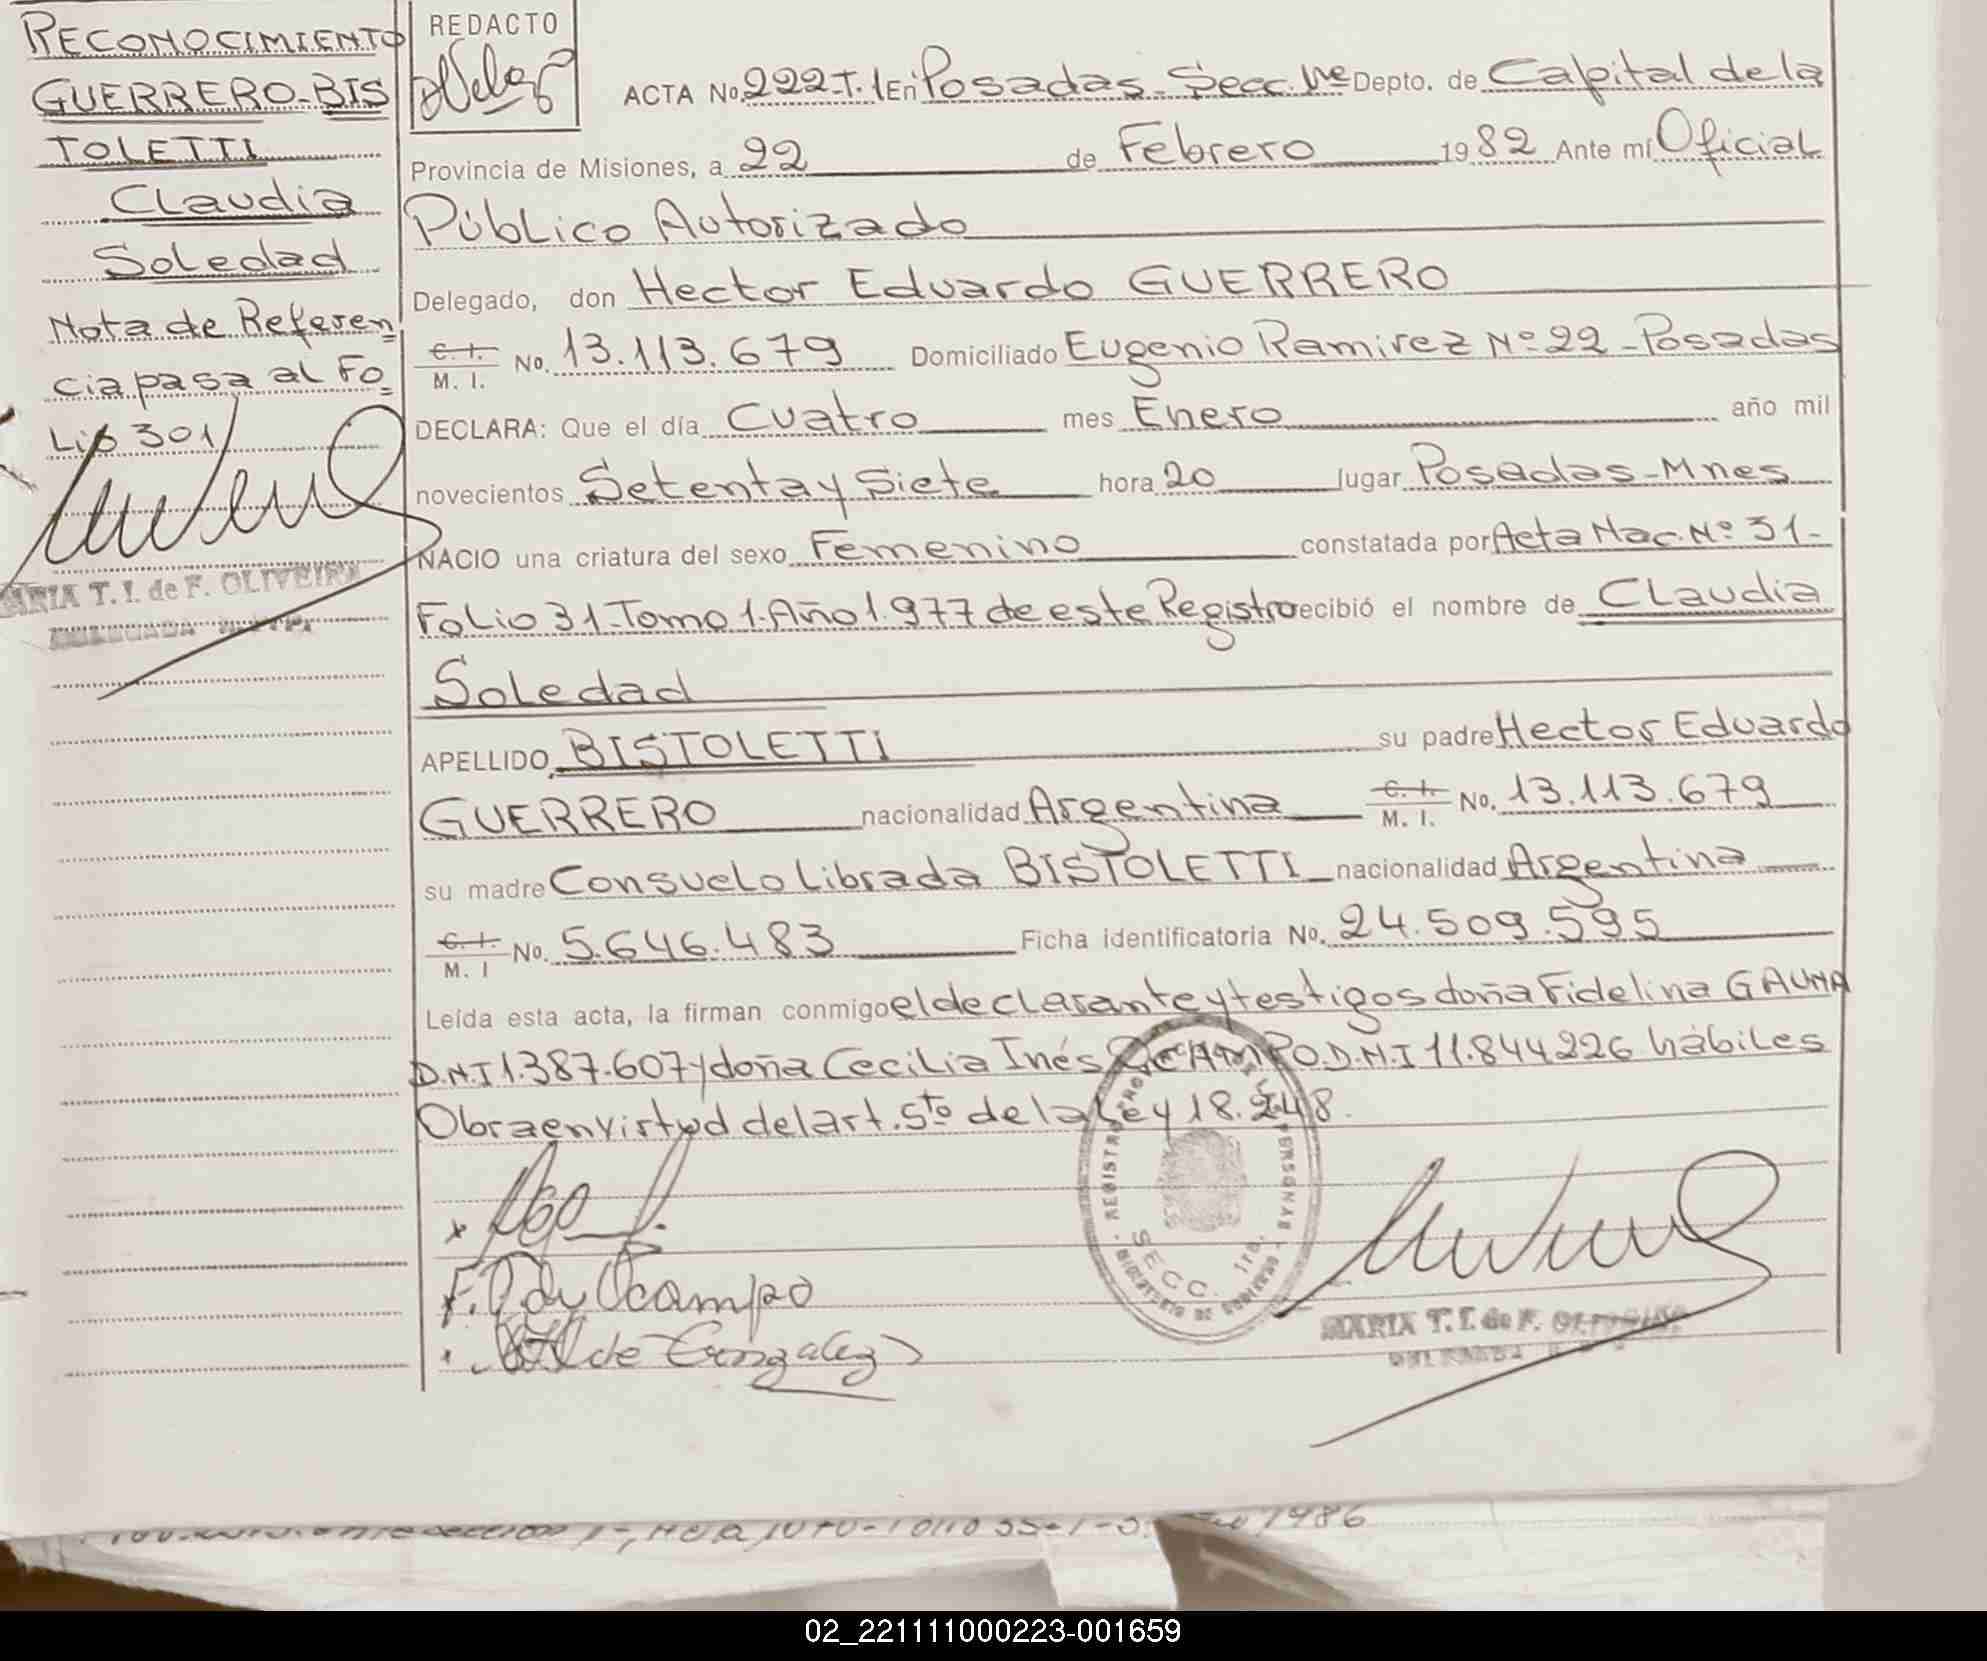 RECONOCIMIENTO
GUERRERO-BIS
TOLETTI
Claudia
Soledad
Nota de Referen
cia pasa al Fo
Lio 301
MARIA T. I. de F. OLIVEIRA
REDACTO
ACTA No. 222-T.1 En Posadas - Secc. 1ra Depto. de Capital de la
Provincia de Misiones, a 22 de Febrero 1982 Ante mí Oficial
Público Autorizado
Delegado, don Hector Eduardo GUERRERO
C. I. M. I. No. 13.113.679 Domiciliado Eugenio Ramirez Nº 22 - Posadas
DECLARA: Que el día Cuatro mes Enero año mil
novecientos Setenta y Siete hora 20 lugar Posadas - Mnes
NACIO una criatura del sexo Femenino constatada por Acta Nac. Nº 31-
Folio 31-Tomo 1. Año 1.977 de este Registro recibió el nombre de Claudia
Soledad
APELLIDO, BISTOLETTI su padre Hector Eduardo
GUERRERO nacionalidad Argentina C. I. M. I. No. 13.113.679
su madre Consuelo Librada BISTOLETTI nacionalidad Argentina
C. I. M. I No. 5.646.483 Ficha identificatoria No. 24.509.595
Leída esta acta, la firman conmigo el declarante y testigos doña Fidelina GAUNA
D.N.I 1.387.607 y doña Cecilia Inés D.N.I 11.844.226 hábiles
Obra en virtud del art. 5to de la Ley 18.248.
F. G. de Ocampo
de Gonzalez
SECC. 1ra.
MARIA T. I. de F. OLIVEIRA
1986
02_221111000223-001659